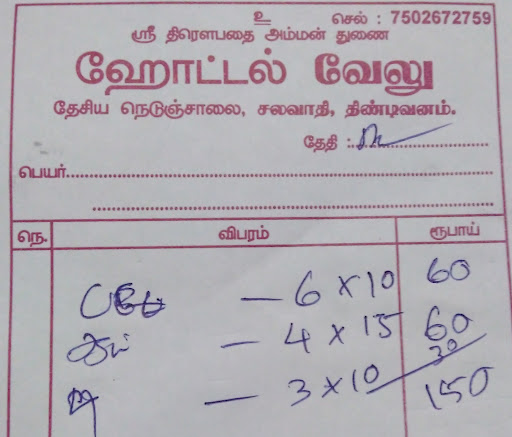 உ
செல் : 7502672759
ஸ்ரீ திரௌபதை அம்மன் துணை
ஹோட்டல் வேலு
தேசிய நெடுஞ்சாலை, சலவாதி, திண்டிவனம்.
தேதி :
பெயர்
நெ. விபரம் ரூபாய்
— 6 x 10 60
— 4 x 15 60
— 3 x 10 30
150